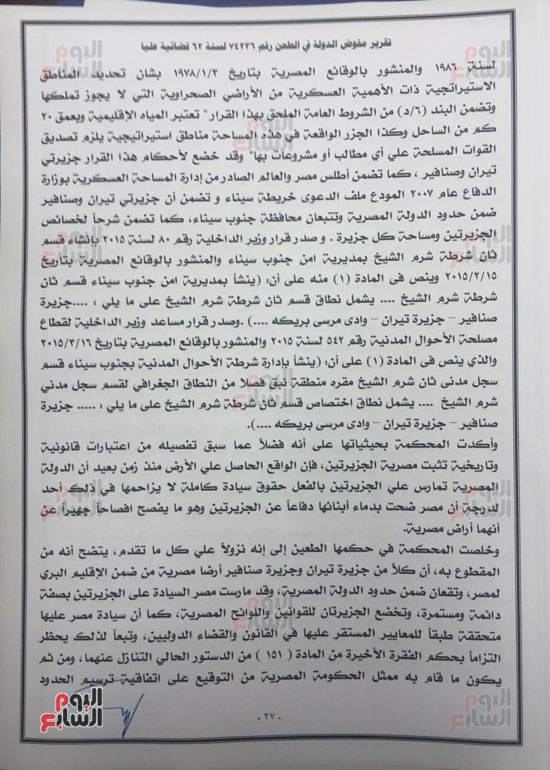 تقرير مفوض الدولة في الطعن رقم ٧٤٢٣٦ لسنة ٦٢ قضائية عليا
لسنة ١٩٨٦ والمنشور بالوقائع المصرية بتاريخ ١٩٧٨/١/٣ بشان تحديد المناطق
الاستيراتجية ذات الأهمية العسكرية من الأراضي الصحراوية التي لا يجوز تملكها
وتضمن البند (٦/د) من الشروط العامة الملحق بهذا القرار" تعتبر المياه الإقليمية وبعمق ٢٠
كم من الساحل وكذا الجزر الواقعة في هذه المساحة مناطق استيراتيجية يلزم تصديق
القوات المسلحة علي أي مطالب أو مشروعات بها" وقد خضع لأحكام هذا القرار جزيرتي
تيران وصنافير ، كما تضمن أطلس مصر والعالم الصادر من إدارة المساحة العسكرية بوزارة
الدفاع عام ٢٠٠٧ المودع ملف الدعوى خريطة سيناء و تضمن أن جزيرتي تيران وصنافير
ضمن حدود الدولة المصرية وتتبعان محافظة جنوب سيناء، كما تضمن شرحاً لخصائص
الجزيرتين ومساحة كل جزيرة . و صدر قرار وزير الداخلية رقم ٨٠ لسنة ٢٠١٥ بإنشاء قسم
ثان شرطة شرم الشيخ بمديرية امن جنوب سيناء والمنشور بالوقائع المصرية بتاريخ
٢٠١٥/٢/١٥ وينص في المادة (١) منه على أن: (ينشأ بمديرية امن جنوب سيناء قسم ثان
شرطة شرم الشيخ .... يشمل نطاق قسم ثان شرطة شرم الشيخ على ما يلي : ....جزيرة
صنافير – جزيرة تيران – وادى مرسى بريكه ....) .وصدر قرار مساعد وزير الداخلية لقطاع
مصلحة الأحوال المدنية رقم ٥٤٢ لسنة ٢٠١٥ والمنشور بالوقائع المصرية بتاريخ ٢٠١٥/٣/١٦
والذي ينص فى المادة (١) على أن: (ينشأ بإدارة شرطة الأحوال المدنية بجنوب سيناء قسم
سجل مدنى ثان شرم الشيخ مقره منطقة نبق فصلا من النطاق الجغرافي لقسم سجل مدني
شرم الشيخ .... يشمل نطاق اختصاص قسم ثان شرطة شرم الشيخ على ما يلي : ..... جزيرة
صنافير – جزيرة تيران – وادى مرسى بريكه ....).
وأكدت المحكمة بحيثياتها على أنه فضلاً عما سبق تفصيله من اعتبارات قانونية
وتاريخية تثبت مصرية الجزيرتين، فإن الواقع الحاصل علي الأرض منذ زمن بعيد أن الدولة
المصرية تمارس علي الجزيرتين بالفعل حقوق سيادة كاملة لا يزاحمها في ذلك أحد
لدرجة أن مصر ضحت بدماء أبنائها دفاعاً عن الجزيرتين وهو ما يفصح افصاحاً جهيراً عن
أنهما أراض مصرية.
وخلصت المحكمة في حكمها الطعين إلى إنه نزولاً علي كل ما تقدم، يتضح أنه من
المقطوع به، أن كلاً من جزيرة تيران وجزيرة صنافير أرضا مصرية من ضمن الإقليم البري
لمصر، وتقعان ضمن حدود الدولة المصرية، وقد مارست مصر السيادة على الجزيرتين بصفة
دائمة ومستمرة، وتخضع الجزيرتان للقوانين واللوائح المصرية، كما أن سيادة مصر عليها
متحققة طبقاً للمعايير المستقر عليها في القانون والقضاء الدوليين، وتبعاً لذلك يحظر
التزاماً بحكم الفقرة الأخيرة من المادة ( ١٥١ ) من الدستور الحالي التنازل عنهما، ومن ثم
يكون ما قام به ممثل الحكومة المصرية من التوقيع على اتفاقية ترسيم الحدود
- ٢٧ -
اليوم السابع